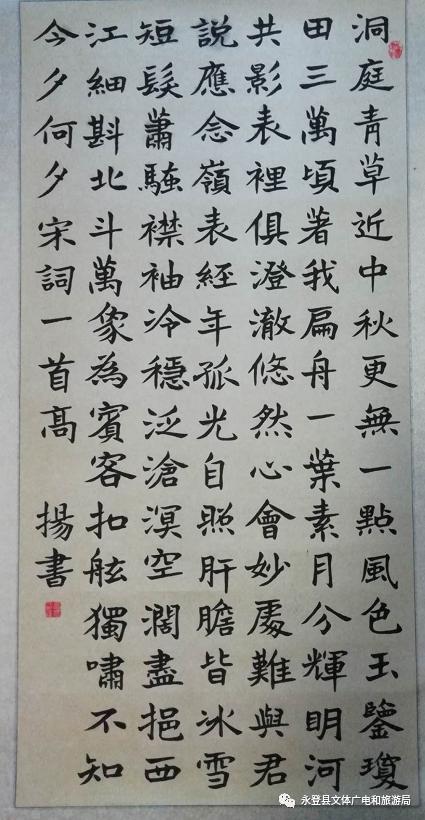 洞庭青草近中秋更無一點風色玉鑒瓊
田三萬頃著我扁舟一葉素月分輝明河
共影表裡俱澄澈悠然心會妙處難與君
說應念嶺表經年孤光自照肝膽皆冰雪
短髮蕭騷襟袖冷穩泛滄溟空濶盡挹西
江細斟北斗萬象為賓客扣舷獨嘯不知
今夕何夕宋詞一首高揚書
永登县文体广电和旅游局